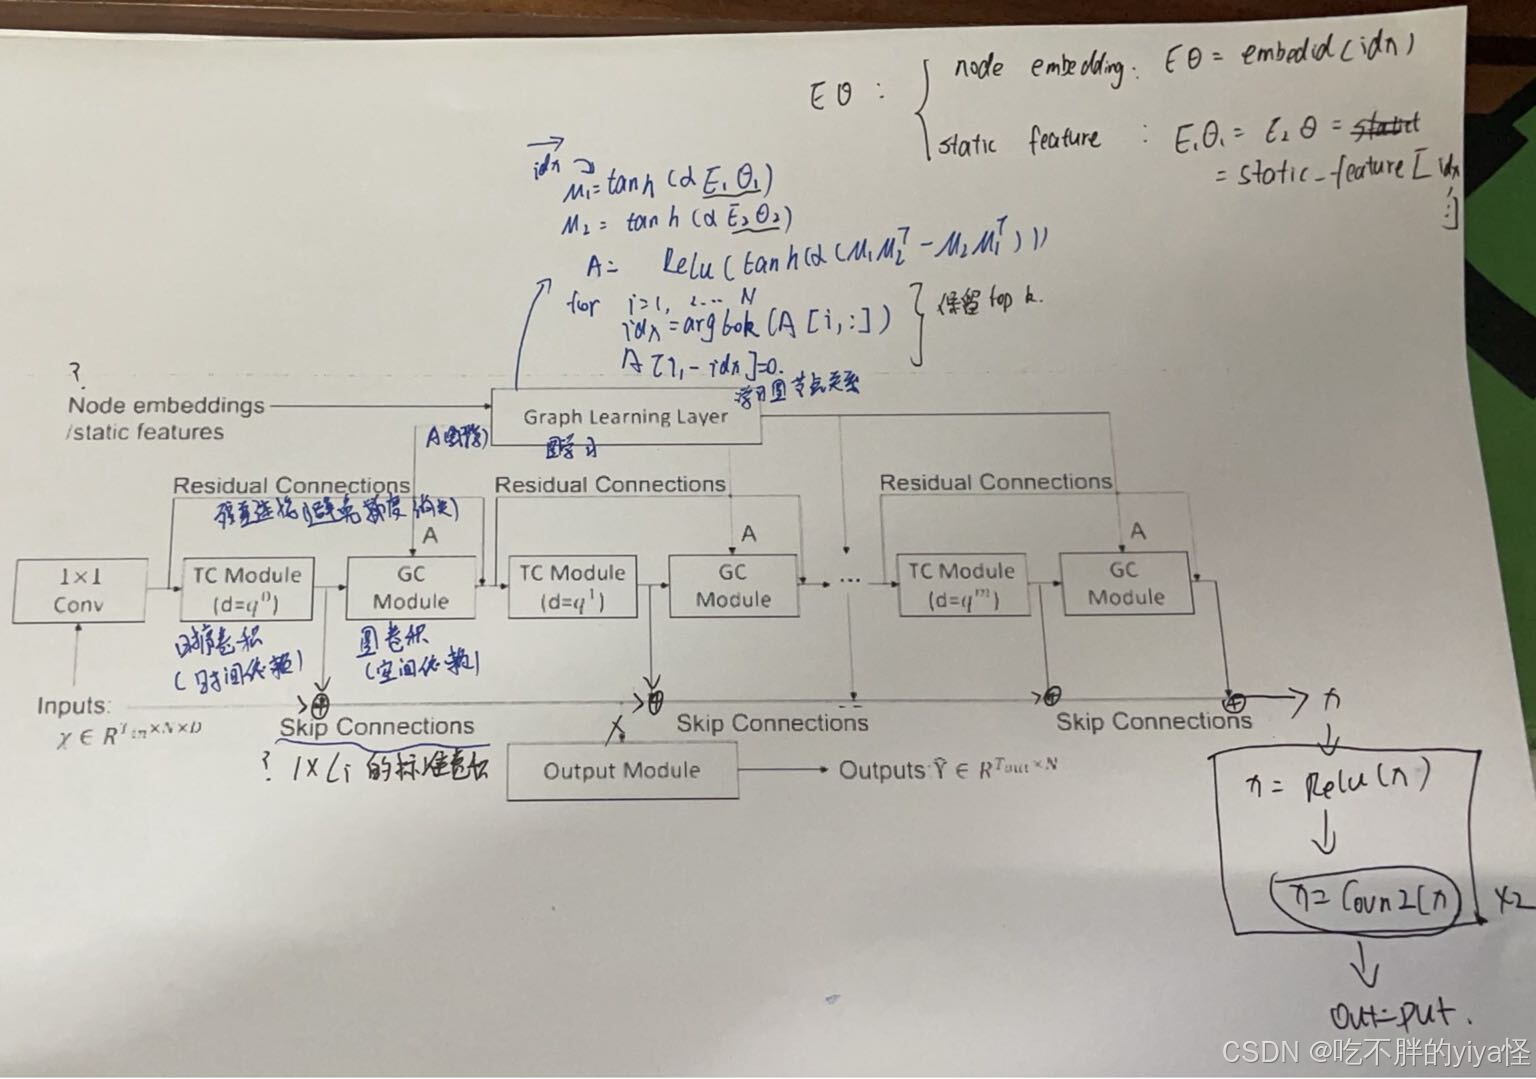 Eθ : node embedding: Eθ = embedid(idx)
static feature : E₁θ₁ = E₂θ =
= static_feature[idx
:]
idx
M₁ = tanh(αE₁θ₁)
M₂ = tanh(αE₂θ₂)
A = Relu(tanh(α(M₁M₂ᵀ − M₂M₁ᵀ)))
for i=1, 2... N
idx = argtok(A[i,:])
A[i,-idx]=0.
保留top k.
?
Node embeddings
/static features
Graph Learning Layer
学习图节点关系
图学习
A
Residual Connections
Residual Connections
Residual Connections
残差连接(避免梯度消失)
A
A
A
1×1
Conv
TC Module
(d=q⁰)
GC
Module
TC Module
(d=q¹)
GC
Module
...
TC Module
(d=qᵐ)
GC
Module
时序卷积
(时间依赖)
图卷积
(空间依赖)
Inputs:
χ ∈ R^{T_in×N×D}
Skip Connections
Skip Connections
Skip Connections
? 1×Li 的标准卷积
Output Module
Outputs Ŷ ∈ R^{T_out×N}
x
x
x = Relu(x)
x = Covn2(x)
×2
Out=put.
CSDN @吃不胖的yiya怪